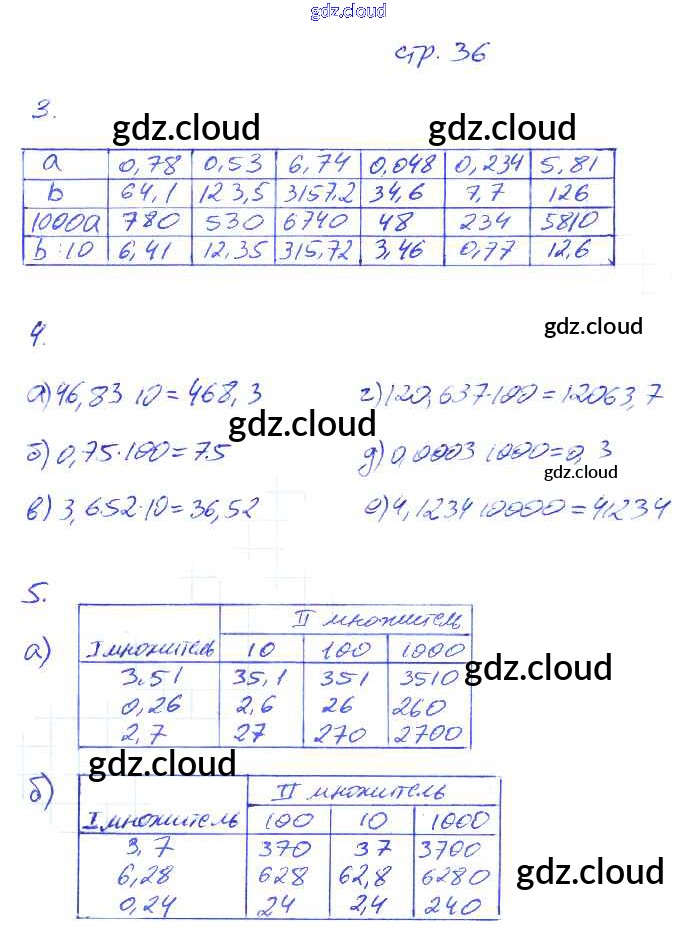 gdz.cloud
стр. 36
3.
gdz.cloud gdz.cloud
a 0,78 0,53 6,74 0,048 0,234 5,81
b 64,1 123,5 3157,2 34,6 7,7 126
1000a 780 530 6740 48 234 5810
b:10 6,41 12,35 315,72 3,46 0,77 12,6
4.
gdz.cloud
а) 46,83 10 = 468,3 г) 120,637·100 = 12063,7
gdz.cloud
б) 0,75·100 = 75 д) 0,0003 1000 = 0,3
gdz.cloud
в) 3,652·10 = 36,52 е) 4,1234 10000 = 41234
5.
а) II множитель
I множитель 10 100 1000
gdz.cloud
3,51 35,1 351 3510
0,26 2,6 26 260
2,7 27 270 2700
gdz.cloud
б) II множитель
I множитель 100 10 1000
3,7 370 37 3700
6,28 628 62,8 6280
gdz.cloud
0,24 24 2,4 240